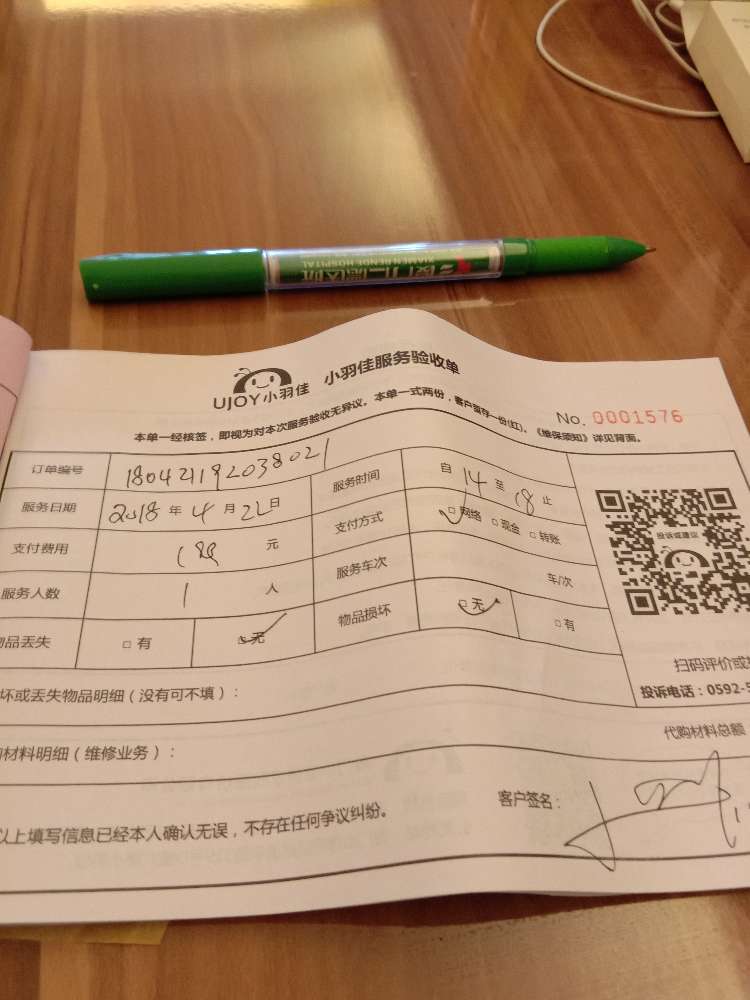 厦门仁德医院
XIAMEN RENDE HOSPITAL
UJOY小羽佳 小羽佳服务验收单
No. 0001576
本单一经核签，即视为对本次服务验收无异议。本单一式两份，客户留存一份(红)。《维保须知》详见背面。
订单编号 180421192038021 服务时间 自 14 至 18 止
服务日期 2018 年 4 月 22 日 支付方式 □网络 □现金 □转账
投诉或建议
支付费用 元 服务车次 车/次
服务人数 1 人 物品损坏 □无 □有
品丢失 □有 □无
扫码评价或
坏或丢失物品明细（没有可不填）： 投诉电话：0592-5
材料明细（维修业务）： 代购材料总额
以上填写信息已经本人确认无误，不存在任何争议纠纷。 客户签名：